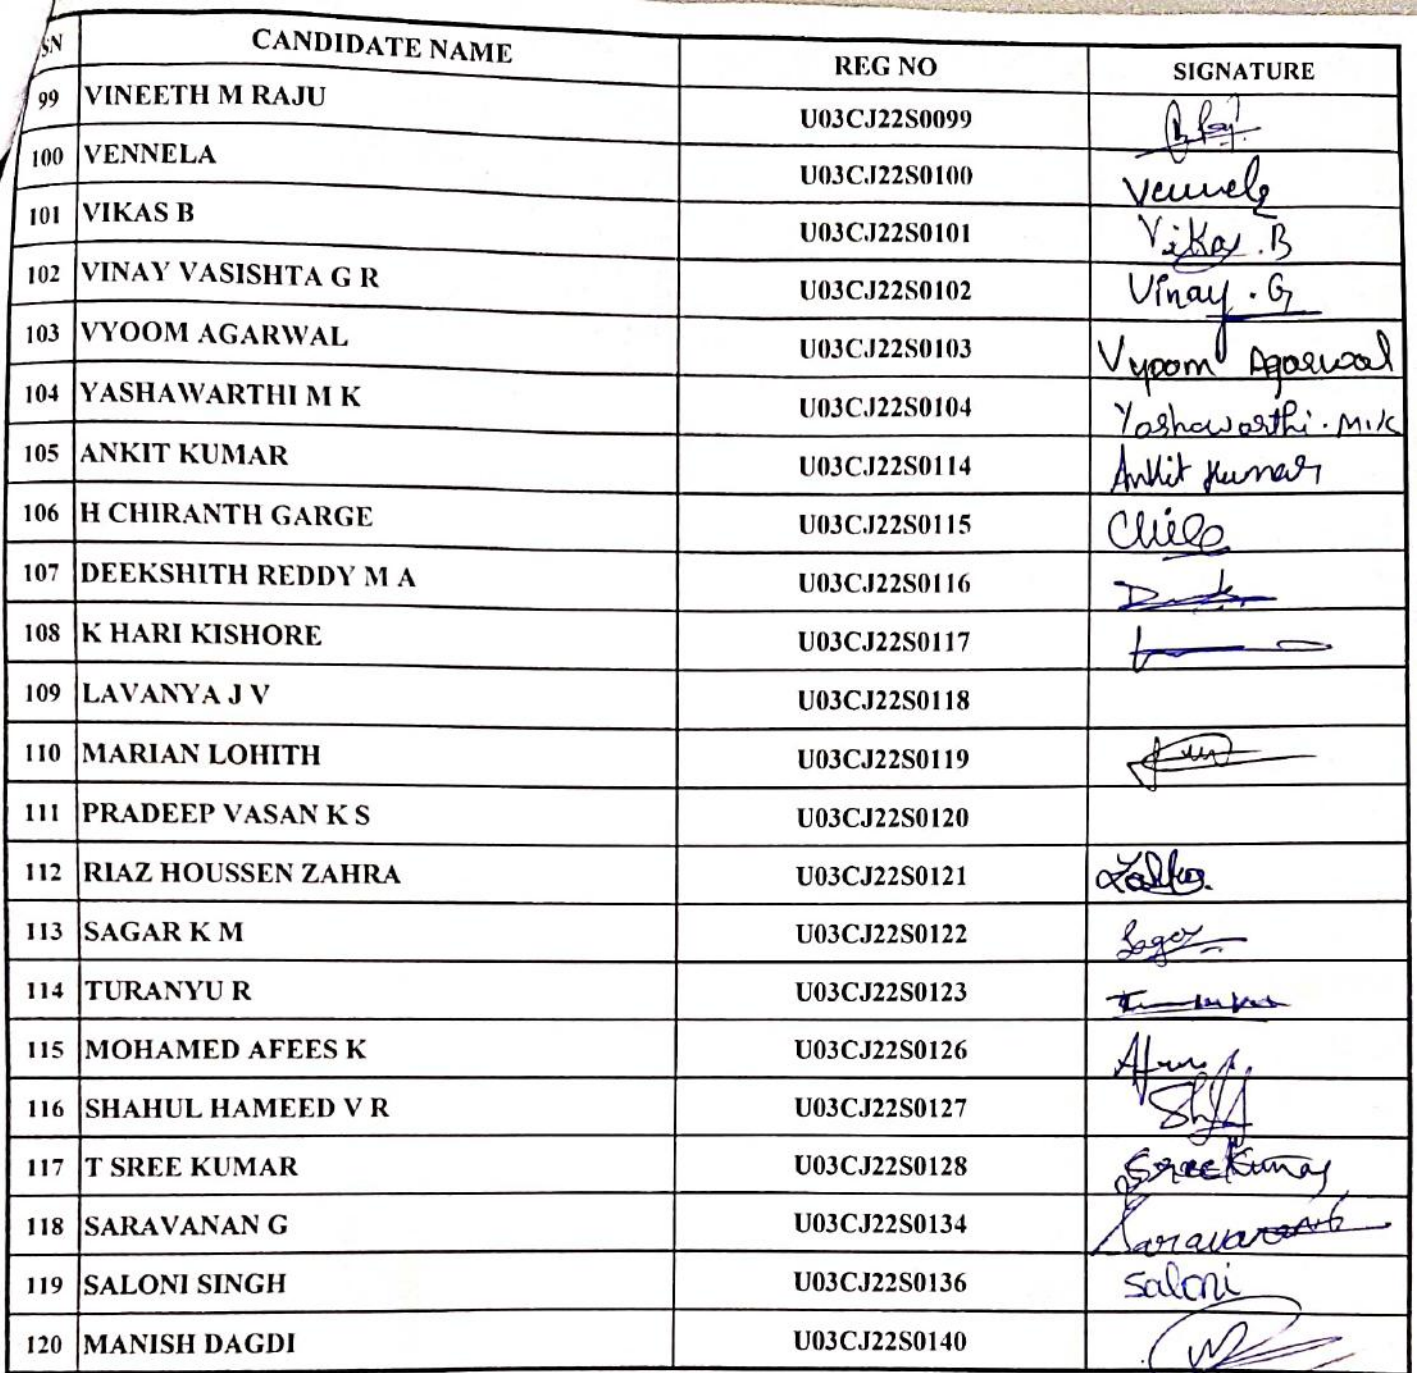 SN CANDIDATE NAME REG NO SIGNATURE
99 VINEETH M RAJU U03CJ22S0099
100 VENNELA U03CJ22S0100 Vennela
101 VIKAS B U03CJ22S0101 Vikas . B
102 VINAY VASISHTA G R U03CJ22S0102 Vinay . G
103 VYOOM AGARWAL U03CJ22S0103 Vyoom Agarwal
104 YASHAWARTHI M K U03CJ22S0104 Yashawarthi . M.K
105 ANKIT KUMAR U03CJ22S0114 Ankit Kumar
106 H CHIRANTH GARGE U03CJ22S0115
107 DEEKSHITH REDDY M A U03CJ22S0116
108 K HARI KISHORE U03CJ22S0117
109 LAVANYA J V U03CJ22S0118
110 MARIAN LOHITH U03CJ22S0119
111 PRADEEP VASAN K S U03CJ22S0120
112 RIAZ HOUSSEN ZAHRA U03CJ22S0121
113 SAGAR K M U03CJ22S0122 Sagar
114 TURANYU R U03CJ22S0123
115 MOHAMED AFEES K U03CJ22S0126
116 SHAHUL HAMEED V R U03CJ22S0127
117 T SREE KUMAR U03CJ22S0128 SreeKumar
118 SARAVANAN G U03CJ22S0134
119 SALONI SINGH U03CJ22S0136 Saloni
120 MANISH DAGDI U03CJ22S0140